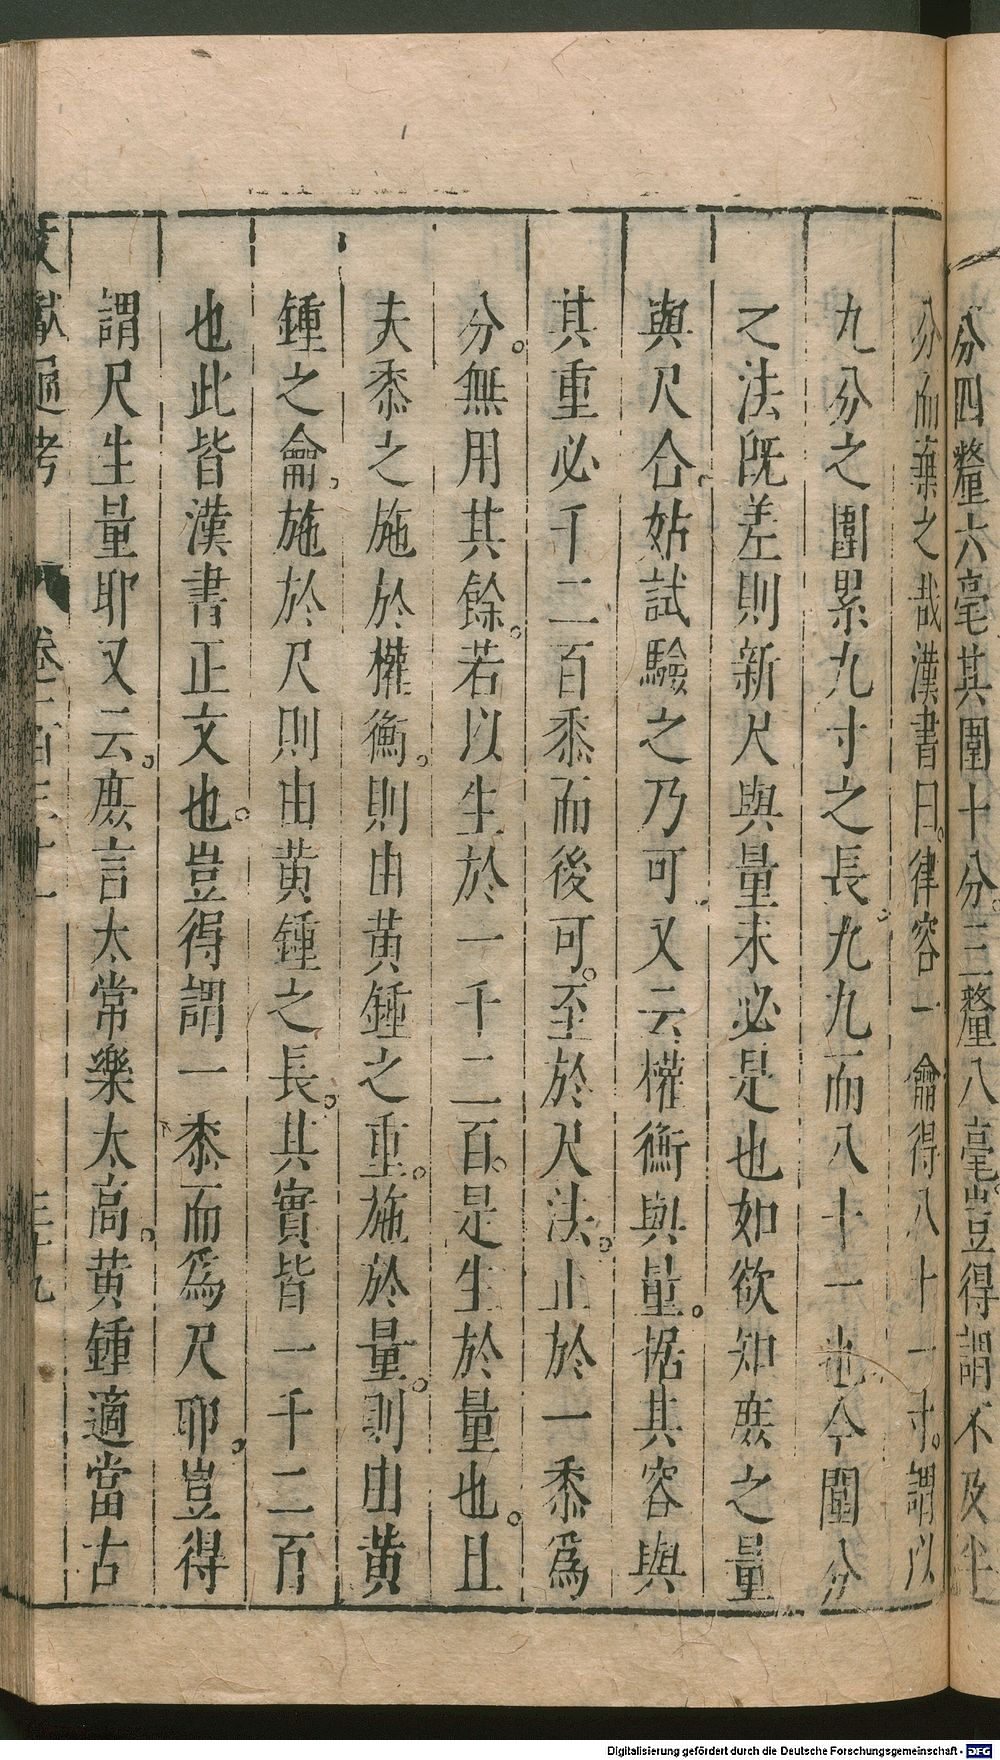 分四釐六毫其圍十分。三釐八毫。豈得謂不及半
分而棄之哉漢書曰。律容一龠得八十一寸。謂以
九分之圍累九寸之長。九九而八十一也今圍分
之法既差則新尺與量未必是也如欲知庶之量
與尺合。姑試驗之乃可。又云權衡與量。据其容與
其重必千二百黍而後可。至於尺法。止於一黍爲
分。無用其餘。若以生於一千二百。是生於量也。且
夫黍之施於權衡。則由黃鍾之重。施於量。則由黃
鍾之龠。施於尺則由黃鍾之長。其實皆一千二百
也此皆漢書正文也。豈得謂一黍而爲尺耶。豈得
謂尺生量耶又云。庶言太常樂太高。黃鍾適當古
文獻通考
卷一百三十一
三十九
Digitalisierung gefördert durch die Deutsche Forschungsgemeinschaft - DFG